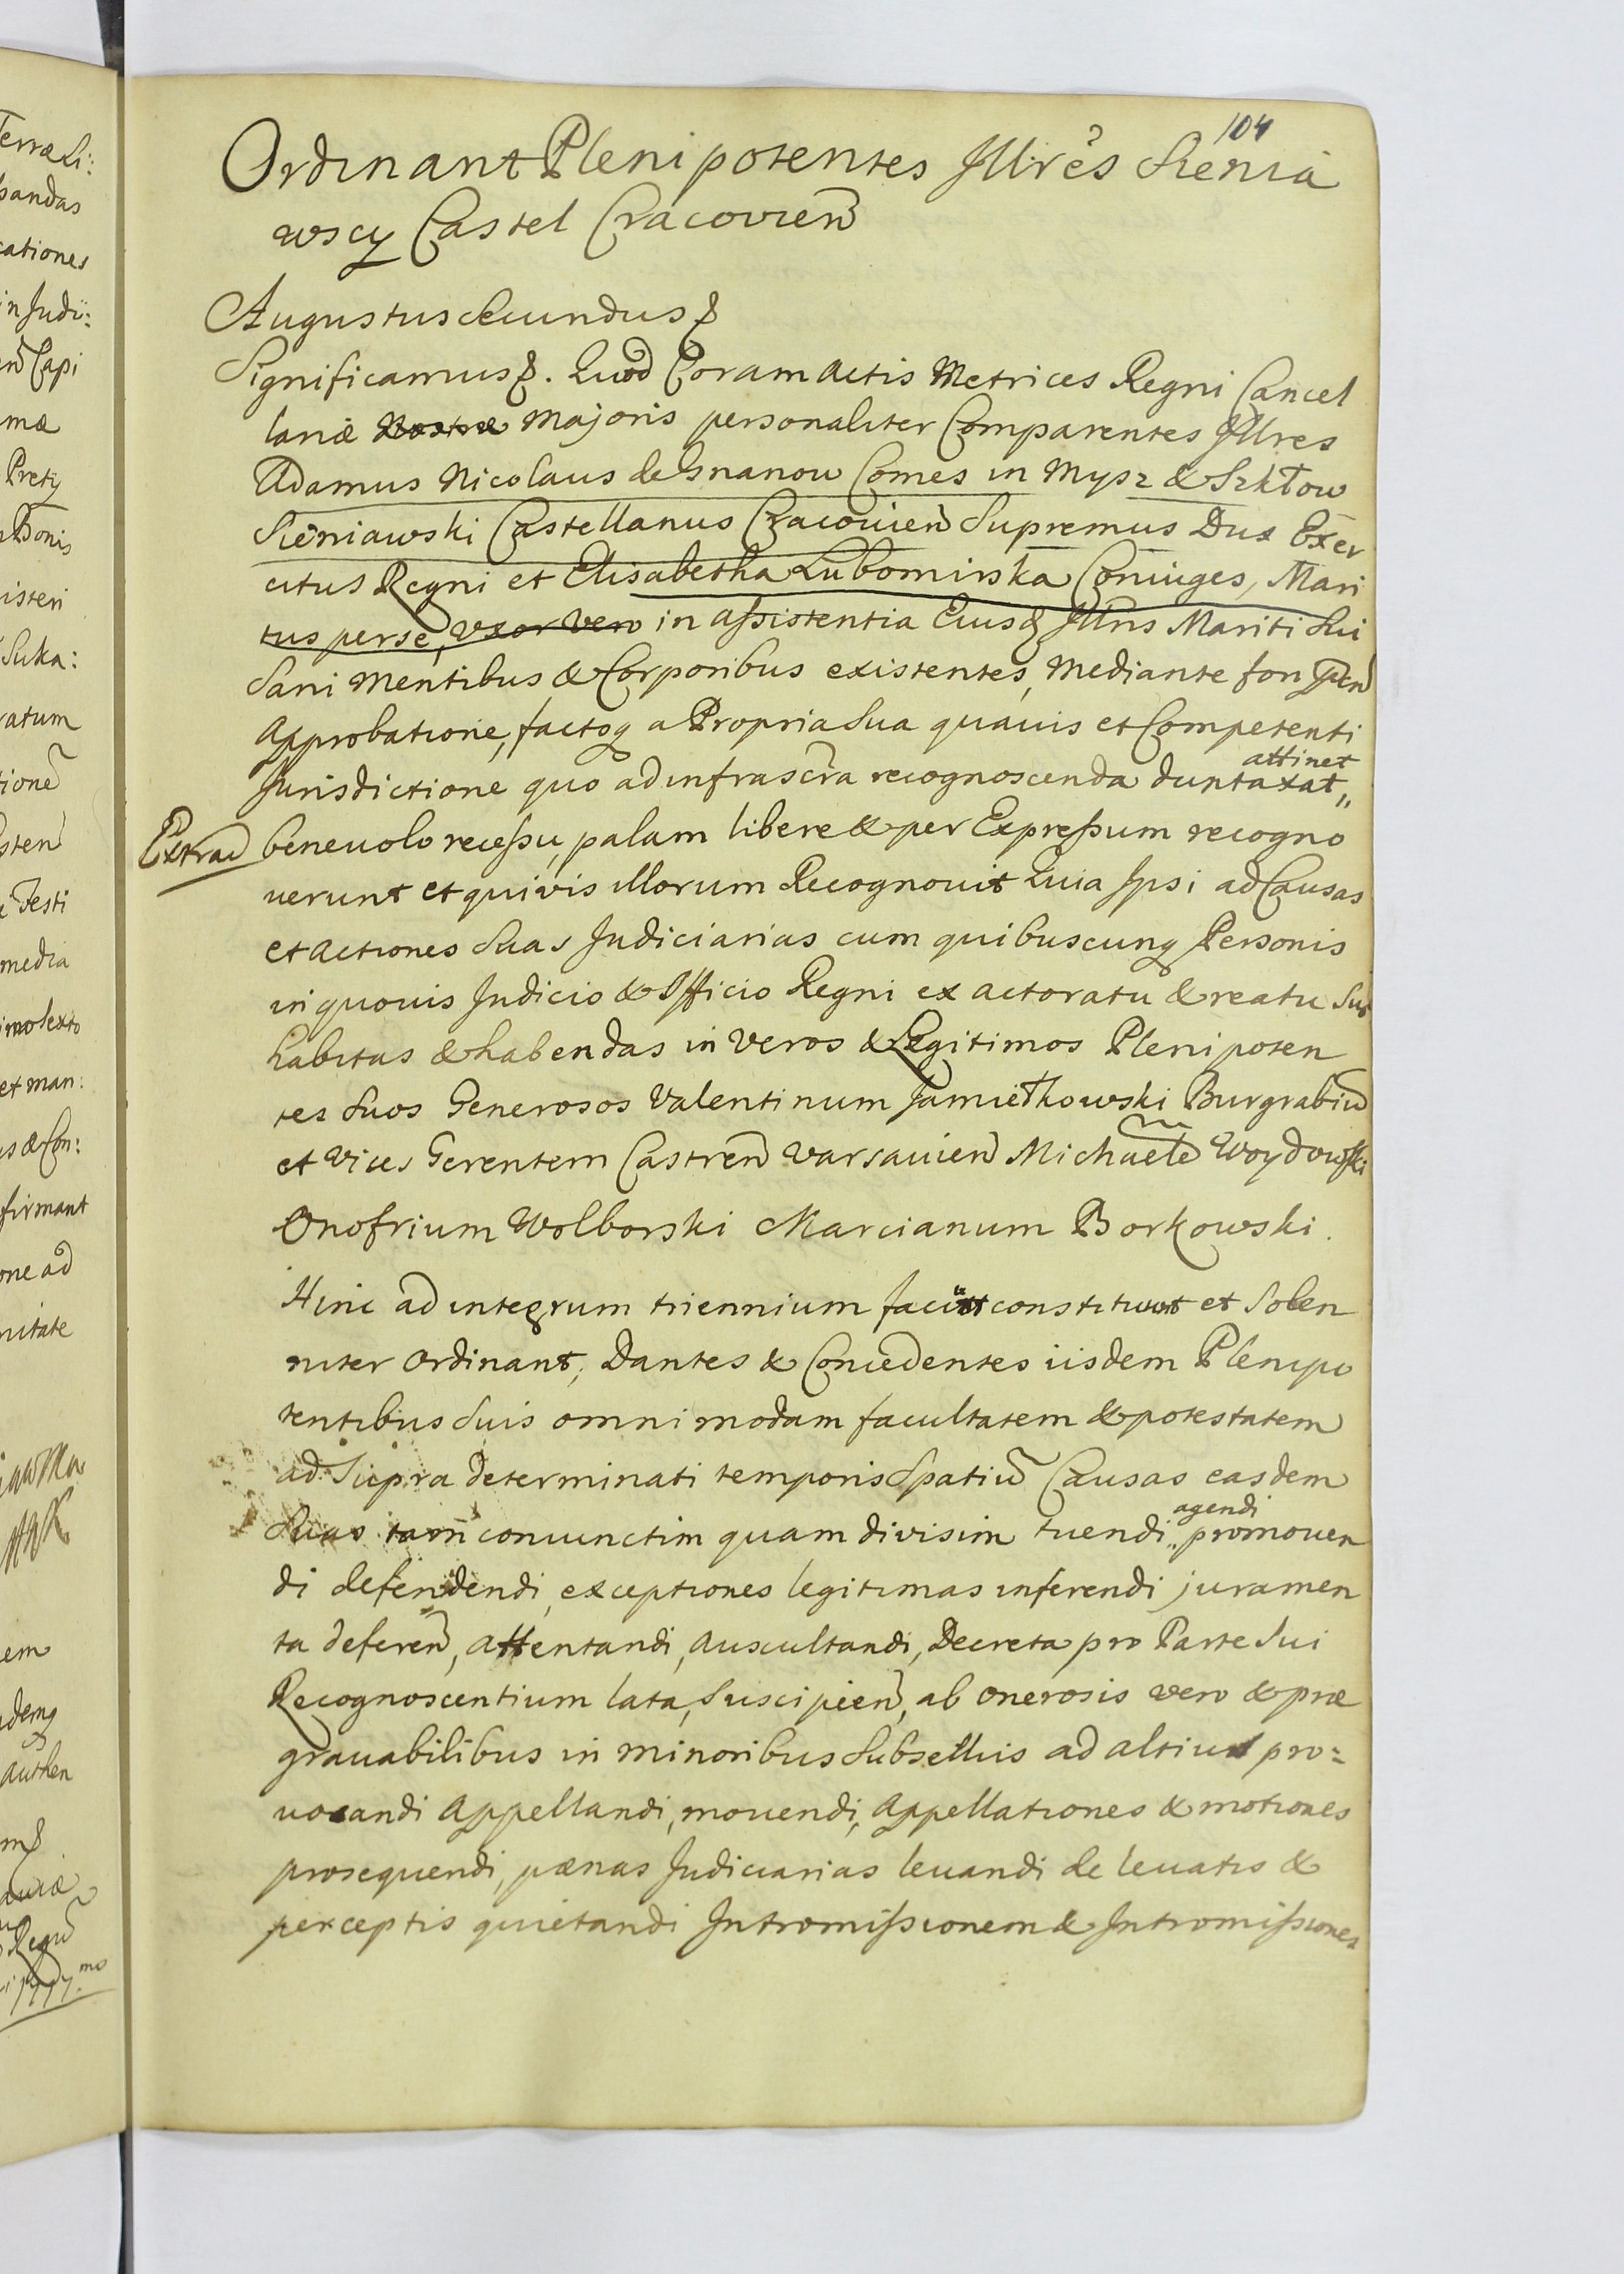 104
Ordinant Plenipotentes Jllrēs Sienia
wscy Castel Cracovien
Augustus Secundus &
Significamus &. Quod Coram Actis Metrices Regni Cancel
lariæ Nostræ Majoris personaliter Comparentes Jllres
Adamus Nicolaus de Granow Comes in Mysz & Szkłow
Sieniawski Castellanus Cracovien Supremus Dux Exer
citus Regni et Elisabetha Lubomirska Coniuges, Mari
tus per se, Uxor Vero in assistentia Eiusq Jllris Mariti Sui
Sani Mentibus & Corporibus existentes, Mediante fori
Approbatione, factoq a Propria Sua quavis et Competenti
Jurisdictione quo ad infrascra recognoscenda duntaxat attinet
Extrad
benevolo recessu, palam libere & per Expressum recogno
verunt et quivis illorum Recognovit Quia Jpsi ad Causas
et Actiones Suas Judiciarias cum quibuscunq Personis
in quovis Judicio & Officio Regni ex actoratu & reatu Suo
habitas & habendas in Veros & Legitimos Plenipoten
tes Suos Generosos Valentinum Jamiełkowski Burgrabiu
et Vices Gerentem Castren Varsavien Michaele Woydowski
Onofrium Wolborski Marcianum Borkowski.
Hinc ad integrum triennium faciunt constituunt et Solen
niter Ordinant, Dantes & Concedentes iisdem Plenipo
tentibus Suis omnimodam facultatem & potestatem
ad Supra determinati temporis Spatiu Causas easdem
Suas tam coniunctim quam divisim tuendi agendi promoven
di defendendi, exceptiones legitimas inferendi juramen
ta deferen, Attentandi, Auscultandi, Decreta pro Parte Sui
Recognoscentium lata, Suscipien, ab onerosis vero & præ
gravabilibus in minoribus Subselliis ad altius pro:
vocandi Appellandi, movendi, Appellationes & motiones
prosequendi, pænas Judiciarias levandi de levatis &
perceptis quietandi Intromissionem & Intromissiones